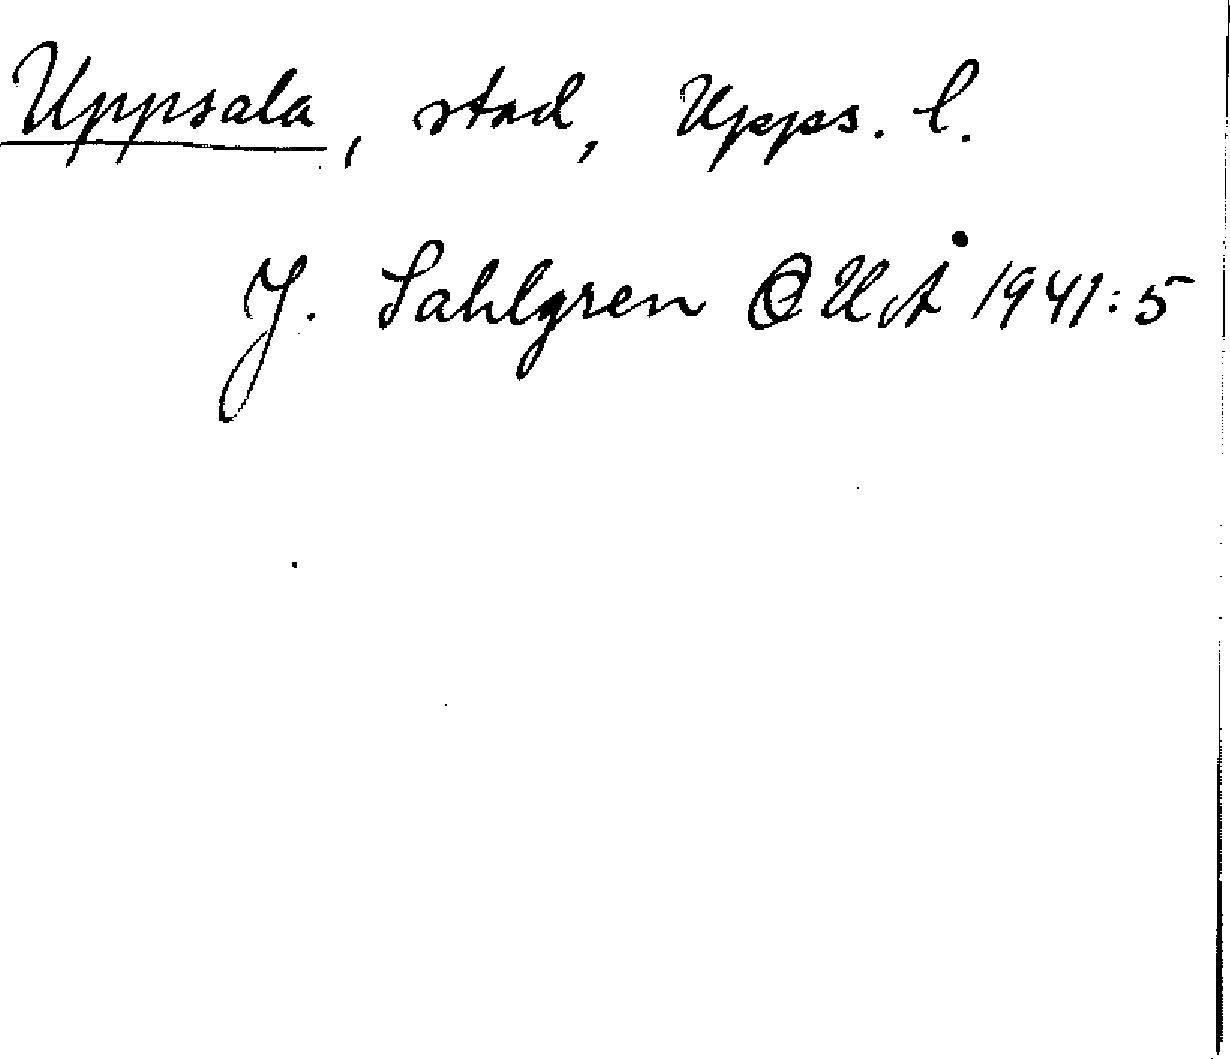 Uppsala, stad, Upps. l.
J. Sahlgren UUÅ 1941:5